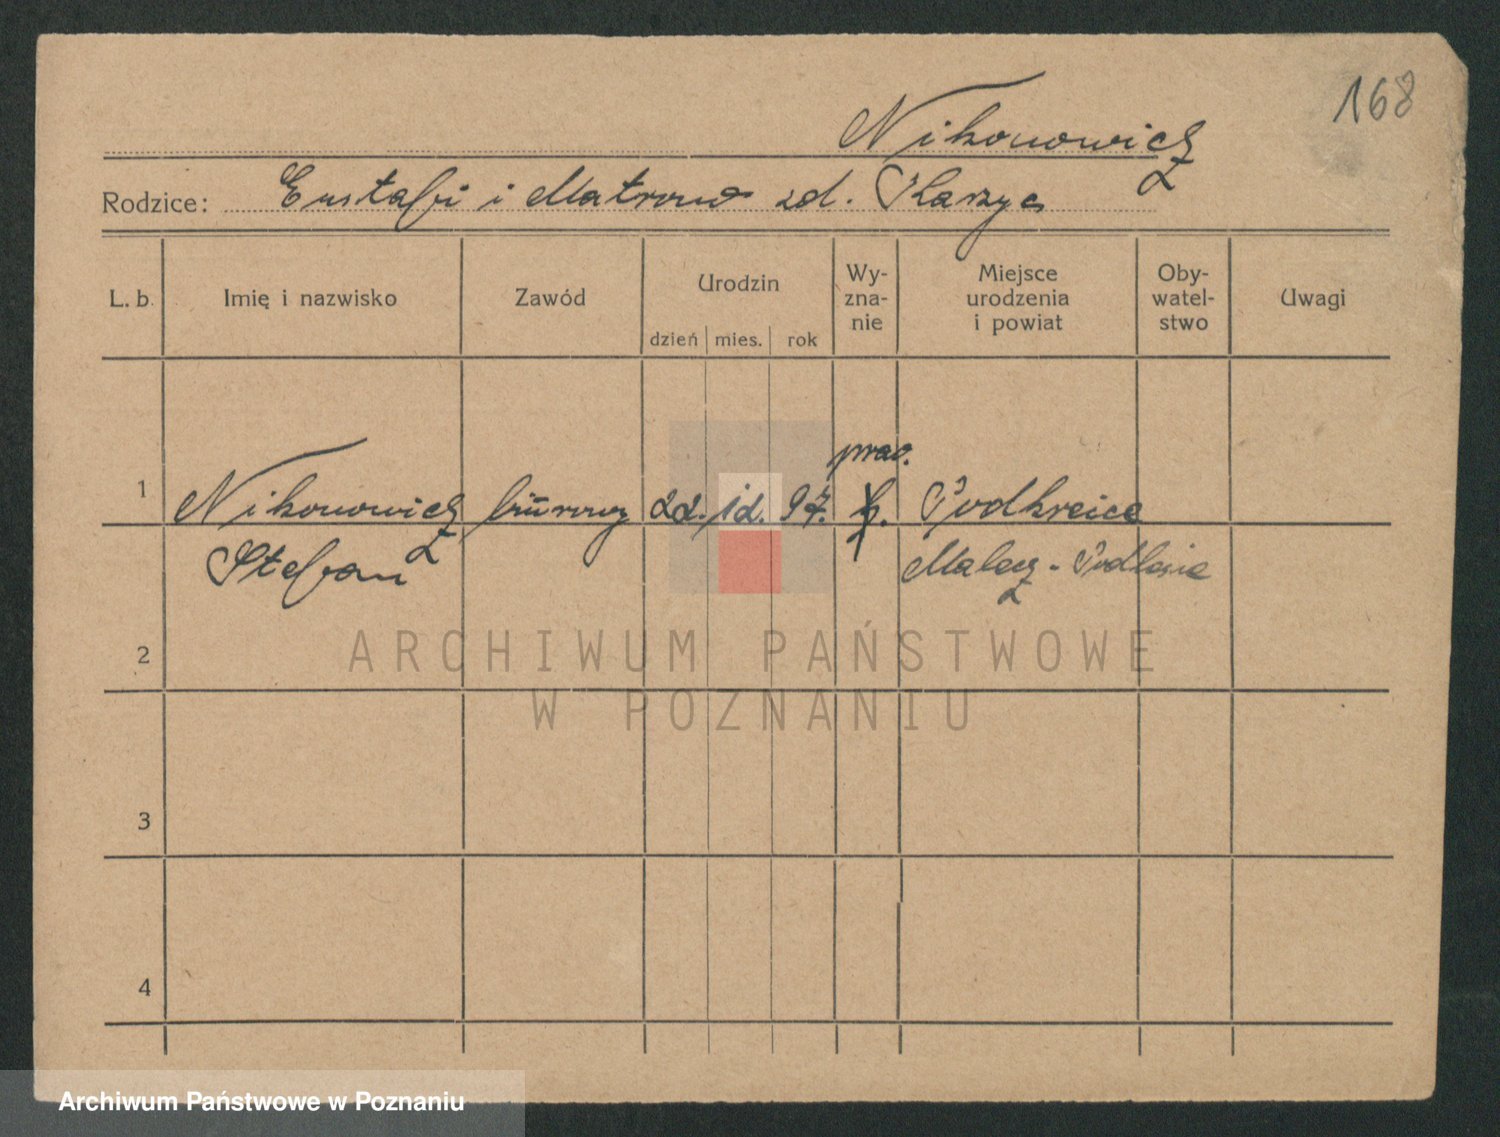 168
Nikonowicz
Rodzice: Eustafi i Matrona zd. Karzyc
L. b. Imię i nazwisko Zawód Urodzin dzień mies. rok Wy-zna-nie Miejsce urodzenia i powiat Oby-watel-stwo Uwagi
praw.
1 Nikonowicz biurowy 22. 12. 97. k. Podkreice
Stefan Malecz - Podlesie
2
ARCHIWUM PAŃSTWOWE
W POZNANIU
3
4
Archiwum Państwowe w Poznaniu